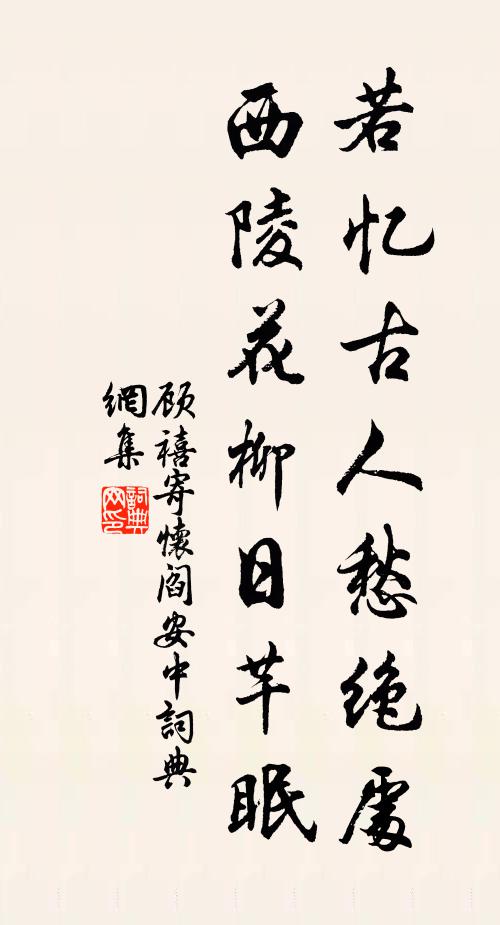 若忆古人愁绝處
西陵花柳日芊眠
顾禧寄懷阎安中詞典
網集
詞典
网印